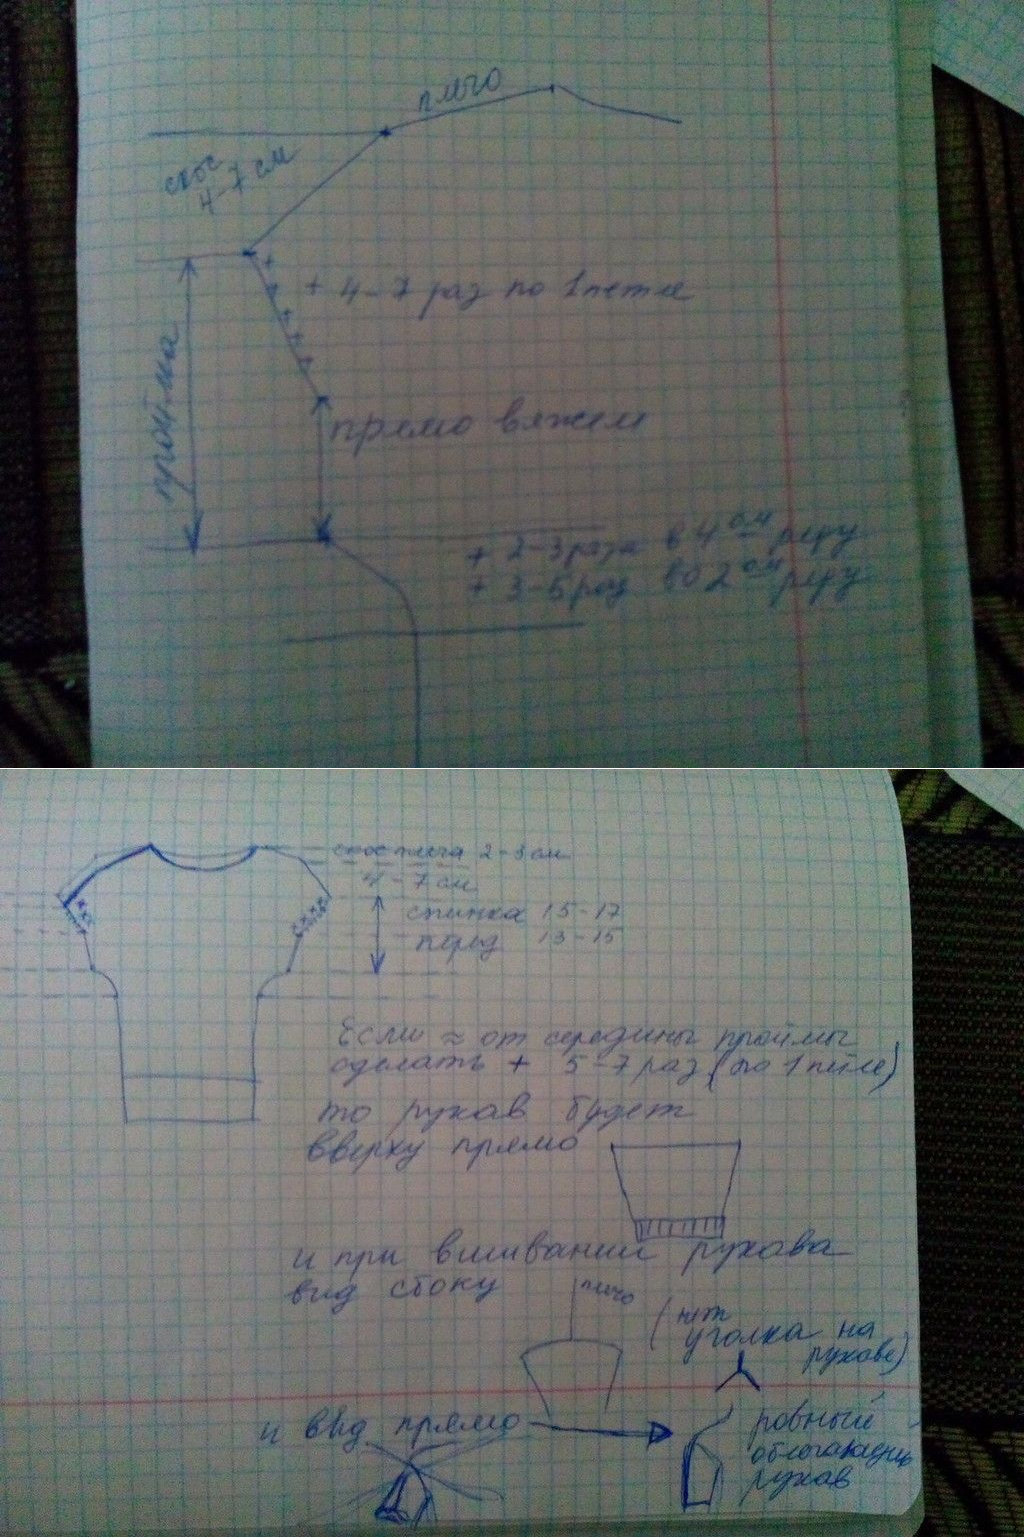 плечо
скос
4-7 см
+ 4-7 раз по 1 петле
пройма
прямо вяжем
+ 2-3 раза в 4ом ряду
+ 3-5 раз во 2ом ряду
скос плеча 2-3 см
4-7 см
спинка 15-17
перед 13-15
Если ≈ от середины проймы
сделать + 5-7 раз (по 1 петле)
то рукав будет
вверху прямо
и при вшивании рукава
вид сбоку
плечо
(нет
уголка на
рукаве)
и вид прямо
ровный
облегающий
рукав